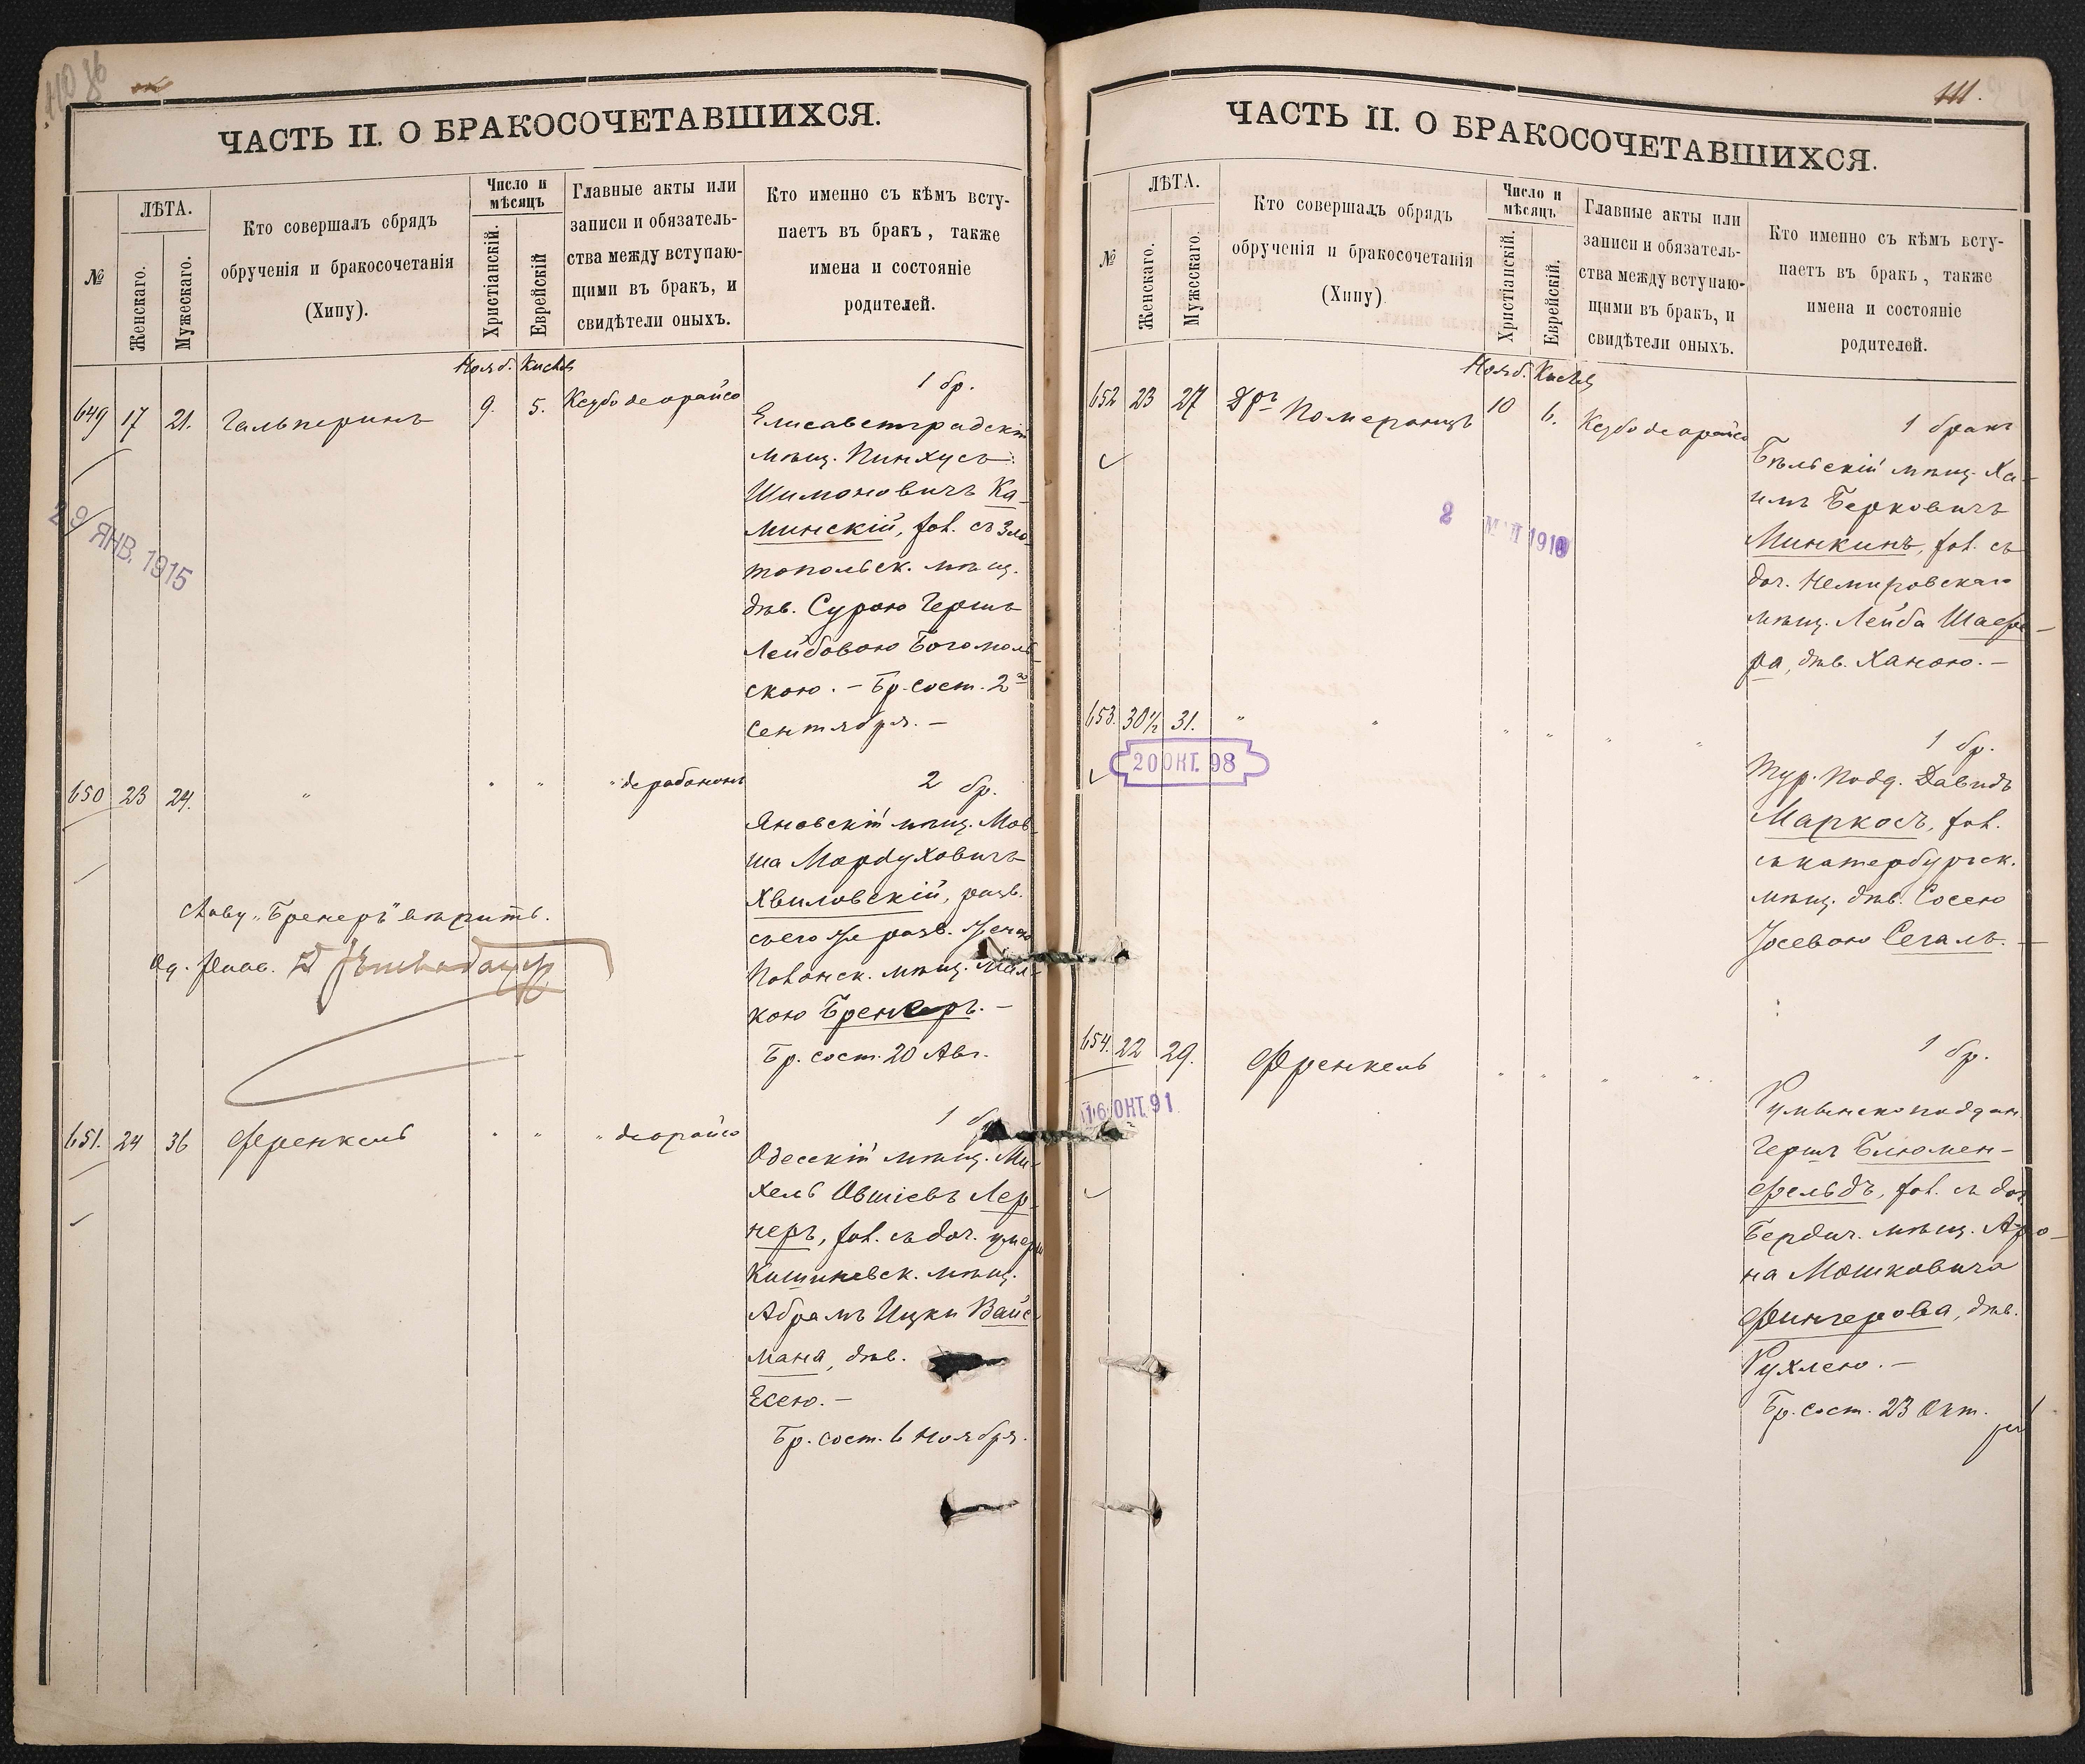 110 об
ЧАСТЬ II. О БРАКОСОЧЕТАВШИХСЯ.
№
ЛѢТА.
Женскаго.
Мужескаго.
Кто совершалъ обрядъ
обрученія и бракосочетанія
(Хипу).
Число и
мѣсяцъ
Христіанскій.
Еврейскій
Главные акты или
записи и обязатель-
ства между вступаю-
щими въ бракъ, и
свидѣтели оныхъ.
Кто именно съ кѣмъ всту-
паетъ въ бракъ, также
имена и состояніе
родителей.
Нояб. Кислев
649 17 21. Гальперинъ 9. 5. Ксубо деорайсо
1 бр.
Елисаветградскій
мѣщ. Пинхусъ
Шимоновичъ Ка-
минскій, хол. съ Зла-
топольск. мѣщ.
дѣв. Сурою Гершъ
Лейбовою Богомоль-
скою. – Бр. сост. 2го
Сентября. –
29 ЯНВ. 1915
650 23 24. " " " " дерабононъ
2 бр.
Яновскій мѣщ. Мов-
ша Мордуховичъ
Хвиловскій, разв.
съ его же разв. женою
мѣщ. Мал-
кою Бренеръ. –
Бр. сост. 20 Авг.
Слову "Бренеръ" вѣрить.
Од. Равв.
651. 24 36 Френкель " " " деорайсо
1 бр.
Одесскій мѣщ. Ми-
хель Овшіевъ Лер-
неръ, хол. съ доч. умер.
Кишиневск. мѣщ.
Абрамъ Ицки Вайс-
мана, дѣв.
Есею. –
Бр. сост. 6 Ноября.
111.
ЧАСТЬ II. О БРАКОСОЧЕТАВШИХСЯ.
№
ЛѢТА.
Женскаго.
Мужескаго.
Кто совершалъ обрядъ
обрученія и бракосочетанія
(Хипу)
Число и
мѣсяцъ
Христіанскій.
Еврейскій.
Главные акты или
записи и обязатель-
ства между вступаю-
щими въ бракъ, и
свидѣтели оныхъ.
Кто именно съ кѣмъ всту-
паетъ въ бракъ, также
имена и состояніе
родителей.
Нояб. Кислев
652 23 27 Дръ Померанцъ 10 6. Ксубо деорайсо
1 бракъ
Бѣльскій мѣщ. Ха-
имъ Берковичъ
Минкинъ, хол. съ
доч. Немировскаго
мѣщ. Лейба Шаефе-
ра, дѣв. Ханою. –
2 МАЙ 1910
653. 30½ 31. " " " " " "
20 ОКТ. 98
1 бр.
Тур. подд. Давидъ
Маркосъ, хол.
съ катербургск.
мѣщ. дѣв. Сосею
Іосевою Сегаль. –
654. 22 29. Френкель " " " "
16 ОКТ. 91
1 бр.
Румынско поддан.
Гершъ Блюмен-
фельдъ, хол. съ доч.
Бердич. мѣщ. Аро-
на Мошковича
Фингерова, дѣв.
Рухлею. –
Бр. сост. 23 Окт.